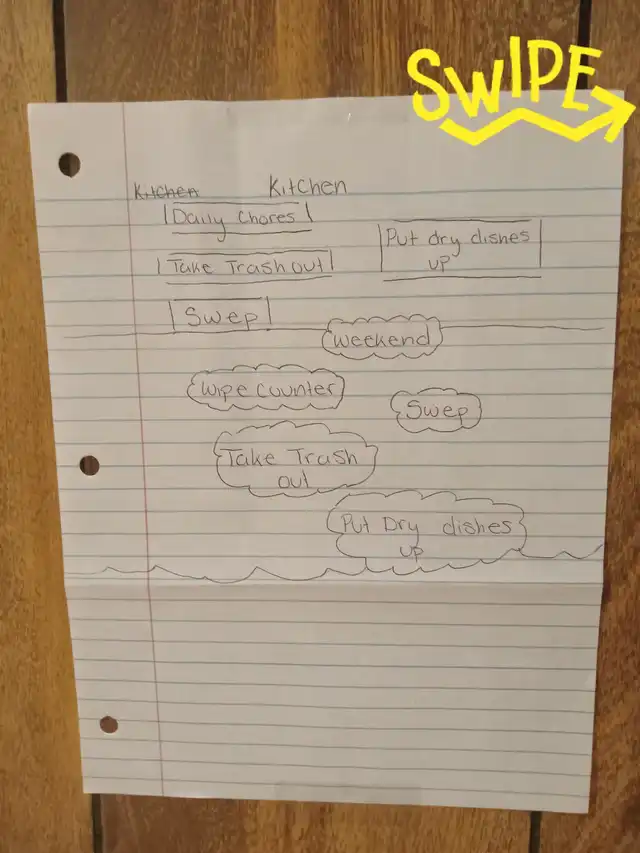 SWIPE
Kitchen Kitchen
Daily Chores
Put dry dishes
up
Take Trash out
Swep
weekend
wipe counter
Swep
Take Trash
out
Put Dry dishes
up